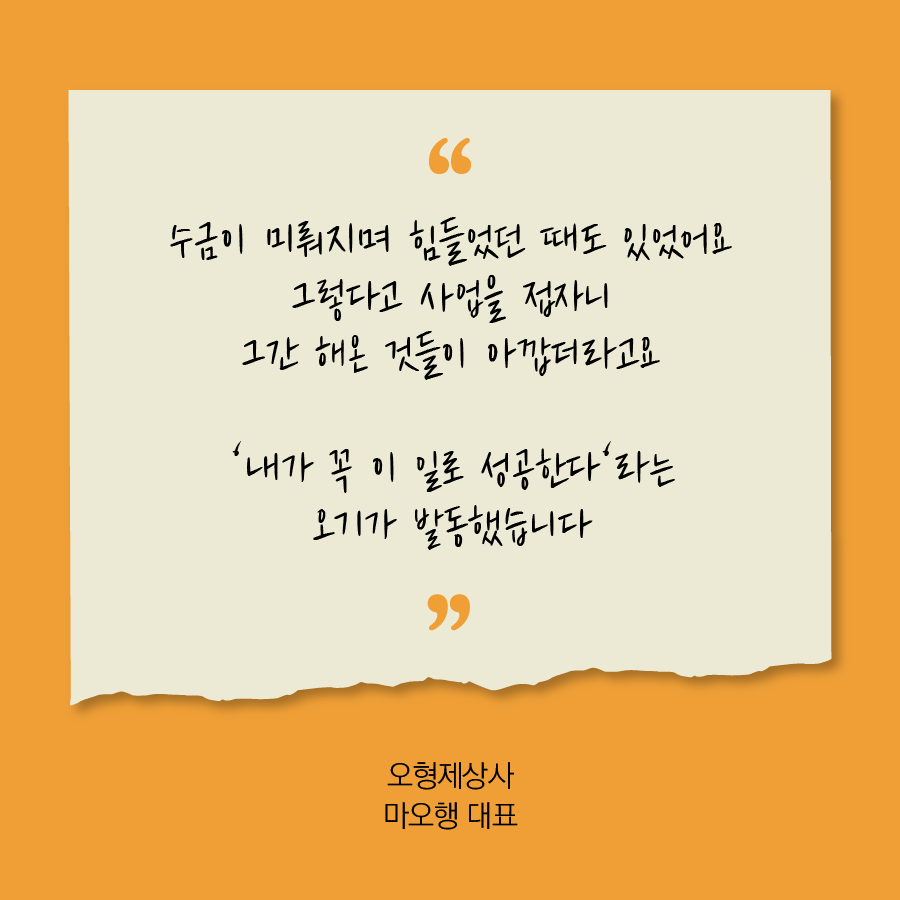 “
수금이 미뤄지며 힘들었던 때도 있었어요
그렇다고 사업을 접자니
그간 해온 것들이 아깝더라고요
‘내가 꼭 이 일로 성공한다‘라는
오기가 발동했습니다
”
오형제상사
마오행 대표